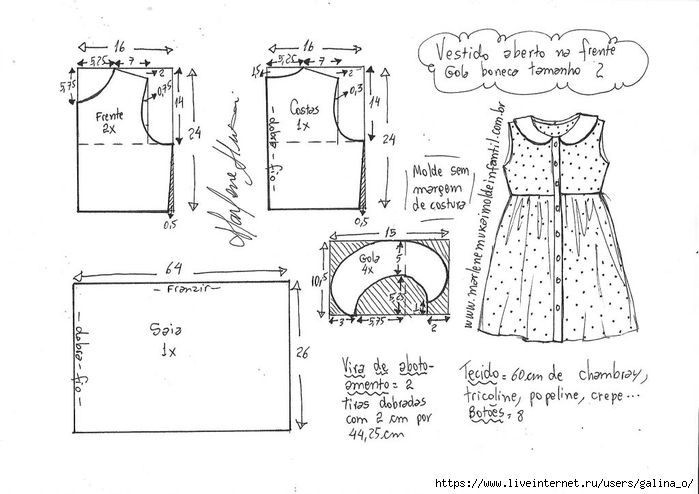 Vestido aberto na frente
Gola boneca tamanho 2
16
5,25
7
2
5,75
0,75
14
24
Frente
2x
0,5
16
5,25
7
2
1,5
0,3
14
24
Costas
1x
- dobra - fio -
0,5
Marlene Mukai
Molde sem
margem
de costura
www.marlenemukaimoldeinfantil.com.br
15
10,5
Gola
4x
5
3
5,75
2
64
- Franzir -
Saia
1x
- dobra - fio -
26
Vira de aboto-
amento = 2
tiras dobradas
com 2 cm por
44,25cm
Tecido = 60cm de chambray,
tricoline, popeline, crepe...
Botões = 8
https://www.liveinternet.ru/users/galina_o/